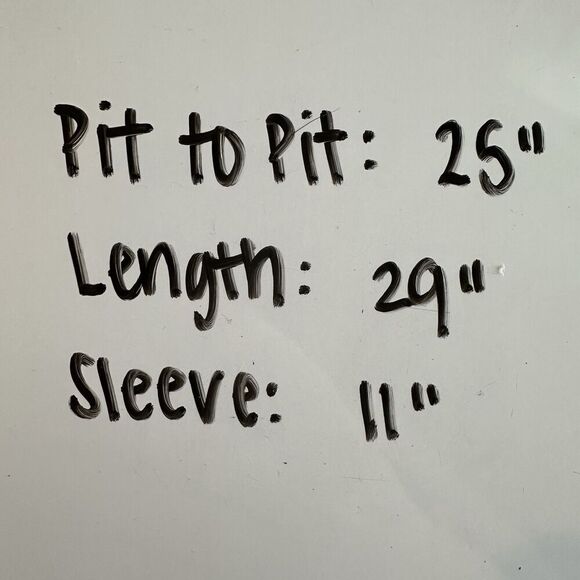 Pit to Pit: 25"
Length: 29"
Sleeve: 11"